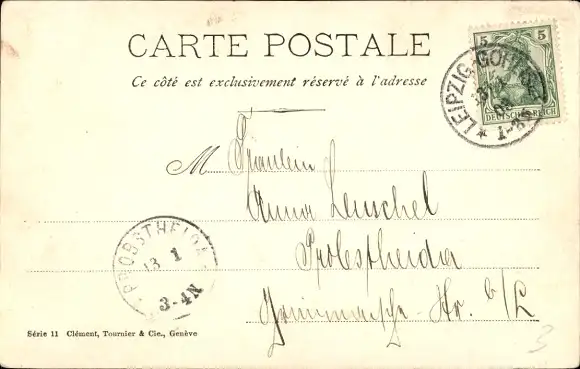 CARTE POSTALE
Ce côté est exclusivement réservé à l'adresse
5 5
DEUTSCHES REICH
LEIPZIG-GOHLIS
M Fräulein
Anna Leuschel
Probstheida
Str. b/L
PROBSTHEIDA
13 1
3-4N
Série 11 Clément, Tournier & Cie., Genève
3